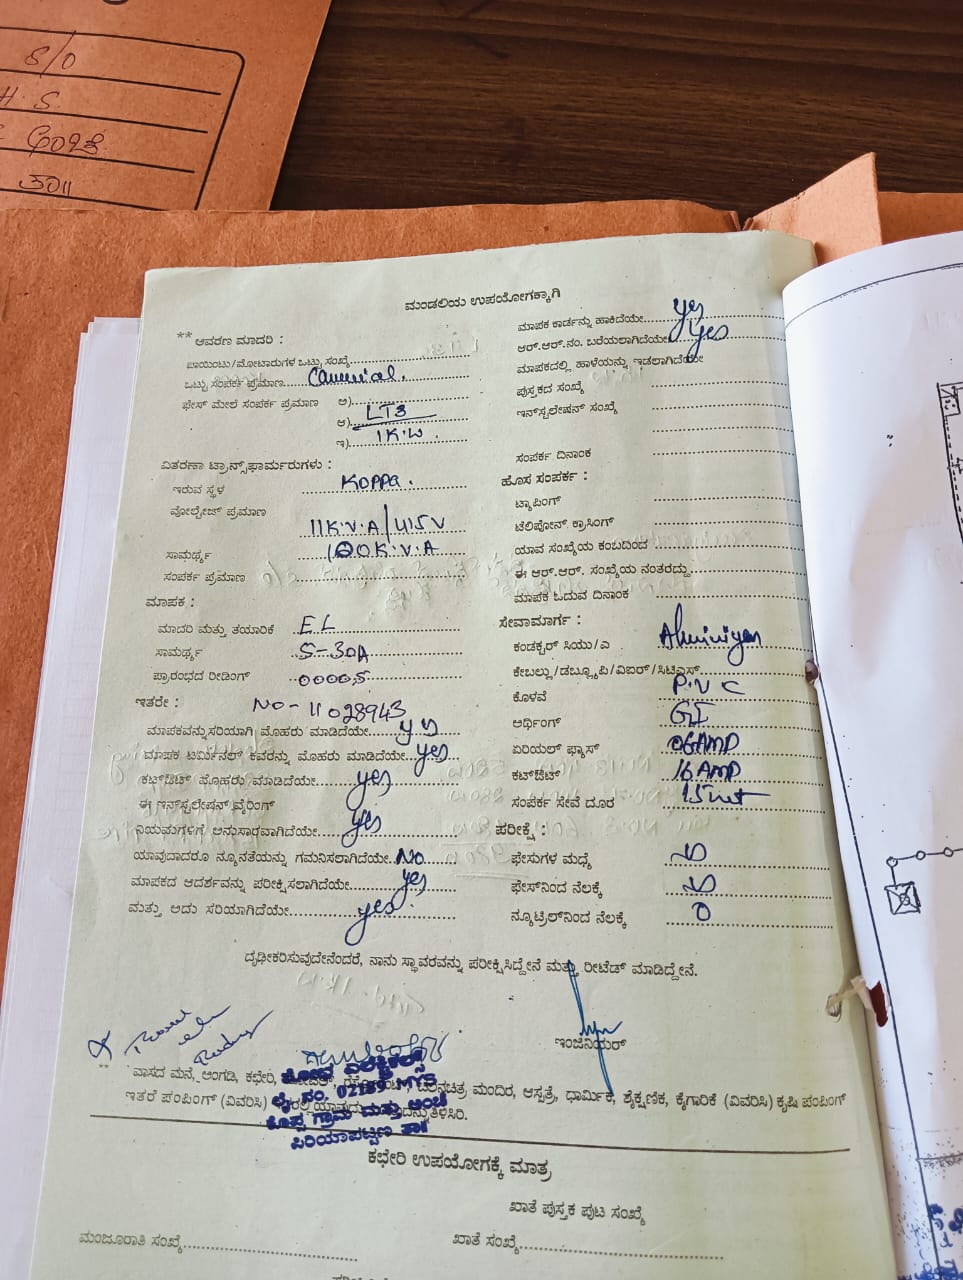 S/O
H. S.
ಅಂಚೆ
ಮಂಡಲಿಯ ಉಪಯೋಗಕ್ಕಾಗಿ
** ಆವರಣ ಮಾದರಿ :
ಪಾಯಿಂಟು/ಮೋಟಾರುಗಳ ಒಟ್ಟು ಸಂಖ್ಯೆ
ಒಟ್ಟು ಸಂಪರ್ಕ ಪ್ರಮಾಣ
ಫೇಸ್ ಮೇಲೆ ಸಂಪರ್ಕ ಪ್ರಮಾಣ ಅ)
ಆ) LT3
ಇ) 1K.W.
ವಿತರಣಾ ಟ್ರಾನ್ಸ್‌ಫಾರ್ಮರುಗಳು :
ಇರುವ ಸ್ಥಳ Koppa.
ವೋಲ್ಟೇಜ್ ಪ್ರಮಾಣ 11K.V.A/415V
ಸಾಮರ್ಥ್ಯ 100K.V.A
ಸಂಪರ್ಕ ಪ್ರಮಾಣ
ಮಾಪಕ :
ಮಾದರಿ ಮತ್ತು ತಯಾರಿಕೆ EL
ಸಾಮರ್ಥ್ಯ 5-30A
ಪ್ರಾರಂಭದ ರೀಡಿಂಗ್ 0000,5
ಇತರೇ : NO-11028943
ಮಾಪಕವನ್ನು ಸರಿಯಾಗಿ ಮೊಹರು ಮಾಡಿದೆಯೇ yes
ಮಾಪಕ ಟರ್ಮಿನಲ್ ಕವರನ್ನು ಮೊಹರು ಮಾಡಿದೆಯೇ yes
ಕಟ್‌ಔಟ್ ಮೊಹರು ಮಾಡಿದೆಯೇ yes
ಈ ಇನ್‌ಸ್ಟಲೇಷನ್ ವೈರಿಂಗ್
ನಿಯಮಗಳಿಗೆ ಅನುಸಾರವಾಗಿದೆಯೇ yes
ಯಾವುದಾದರೂ ನ್ಯೂನತೆಯನ್ನು ಗಮನಿಸಲಾಗಿದೆಯೇ No
ಮಾಪಕದ ಆದರ್ಶವನ್ನು ಪರೀಕ್ಷಿಸಲಾಗಿದೆಯೇ yes
ಮತ್ತು ಅದು ಸರಿಯಾಗಿದೆಯೇ yes
ಮಾಪಕ ಕಾರ್ಡನ್ನು ಹಾಕಿದೆಯೇ yes
ಆರ್.ಆರ್.ನಂ. ಬರೆಯಲಾಗಿದೆಯೇ yes
ಮಾಪಕದಲ್ಲಿ ಹಾಳೆಯನ್ನು ಇಡಲಾಗಿದೆಯೇ
ಪುಸ್ತಕದ ಸಂಖ್ಯೆ
ಇನ್‌ಸ್ಟಲೇಷನ್ ಸಂಖ್ಯೆ
ಸಂಪರ್ಕ ದಿನಾಂಕ
ಹೊಸ ಸಂಪರ್ಕ :
ಟ್ಯಾಪಿಂಗ್
ಟೆಲಿಫೋನ್ ಕ್ರಾಸಿಂಗ್
ಯಾವ ಸಂಖ್ಯೆಯ ಕಂಬದಿಂದ
ಈ ಆರ್.ಆರ್. ಸಂಖ್ಯೆಯ ನಂತರದ್ದು
ಮಾಪಕ ಓದುವ ದಿನಾಂಕ
ಸೇವಾಮಾರ್ಗ :
ಕಂಡಕ್ಟರ್ ಸಿಯು/ಎ
ಕೇಬಲ್ಲು/ಡಬ್ಲ್ಯೂಪಿ/ವಿಐಆರ್/ಸಿಟಿಎಸ್
ಕೊಳವೆ P.V C
ಅರ್ಥಿಂಗ್ GI
ಏರಿಯಲ್ ಫ್ಯೂಸ್ 06AMP
ಕಟ್‌ಔಟ್ 16 AMP
ಸಂಪರ್ಕ ಸೇವೆ ದೂರ 15
ಪರೀಕ್ಷೆ :
ಫೇಸುಗಳ ಮಧ್ಯೆ
ಫೇಸ್‌ನಿಂದ ನೆಲಕ್ಕೆ
ನ್ಯೂಟ್ರಲ್‌ನಿಂದ ನೆಲಕ್ಕೆ 0
ದೃಢೀಕರಿಸುವುದೇನೆಂದರೆ, ನಾನು ಸ್ಥಾವರವನ್ನು ಪರೀಕ್ಷಿಸಿದ್ದೇನೆ ಮತ್ತು ರೀಟೆಡ್ ಮಾಡಿದ್ದೇನೆ.
ಇಂಜಿನಿಯರ್
** ವಾಸದ ಮನೆ, ಅಂಗಡಿ, ಕಛೇರಿ, ಚಲನಚಿತ್ರ ಮಂದಿರ, ಆಸ್ಪತ್ರೆ, ಧಾರ್ಮಿಕ, ಶೈಕ್ಷಣಿಕ, ಕೈಗಾರಿಕೆ (ವಿವರಿಸಿ) ಕೃಷಿ ಪಂಪಿಂಗ್
ಇತರೆ ಪಂಪಿಂಗ್ (ವಿವರಿಸಿ) ತಿಳಿಸಿರಿ.
ಲೈ. ನಂ. 02189 MYS
ಕೊಪ್ಪ ಗ್ರಾಮ ಮತ್ತು ಅಂಚೆ
ಪಿರಿಯಾಪಟ್ಟಣ ತಾ॥
ಕಛೇರಿ ಉಪಯೋಗಕ್ಕೆ ಮಾತ್ರ
ಖಾತೆ ಪುಸ್ತಕ ಪುಟ ಸಂಖ್ಯೆ
ಮಂಜೂರಾತಿ ಸಂಖ್ಯೆ ಖಾತೆ ಸಂಖ್ಯೆ